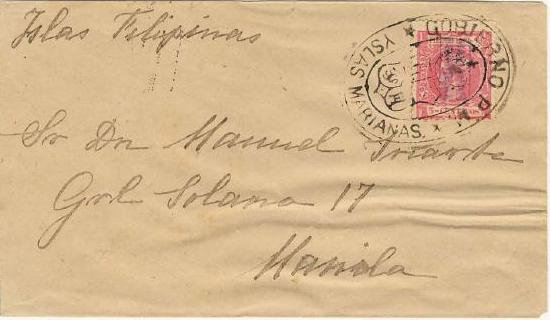 Islas Filipinas
GOBIERNO P.M.
YSLAS MARIANAS.
Sr Dn Manuel Iriarte
Grl Solano 17
Manila